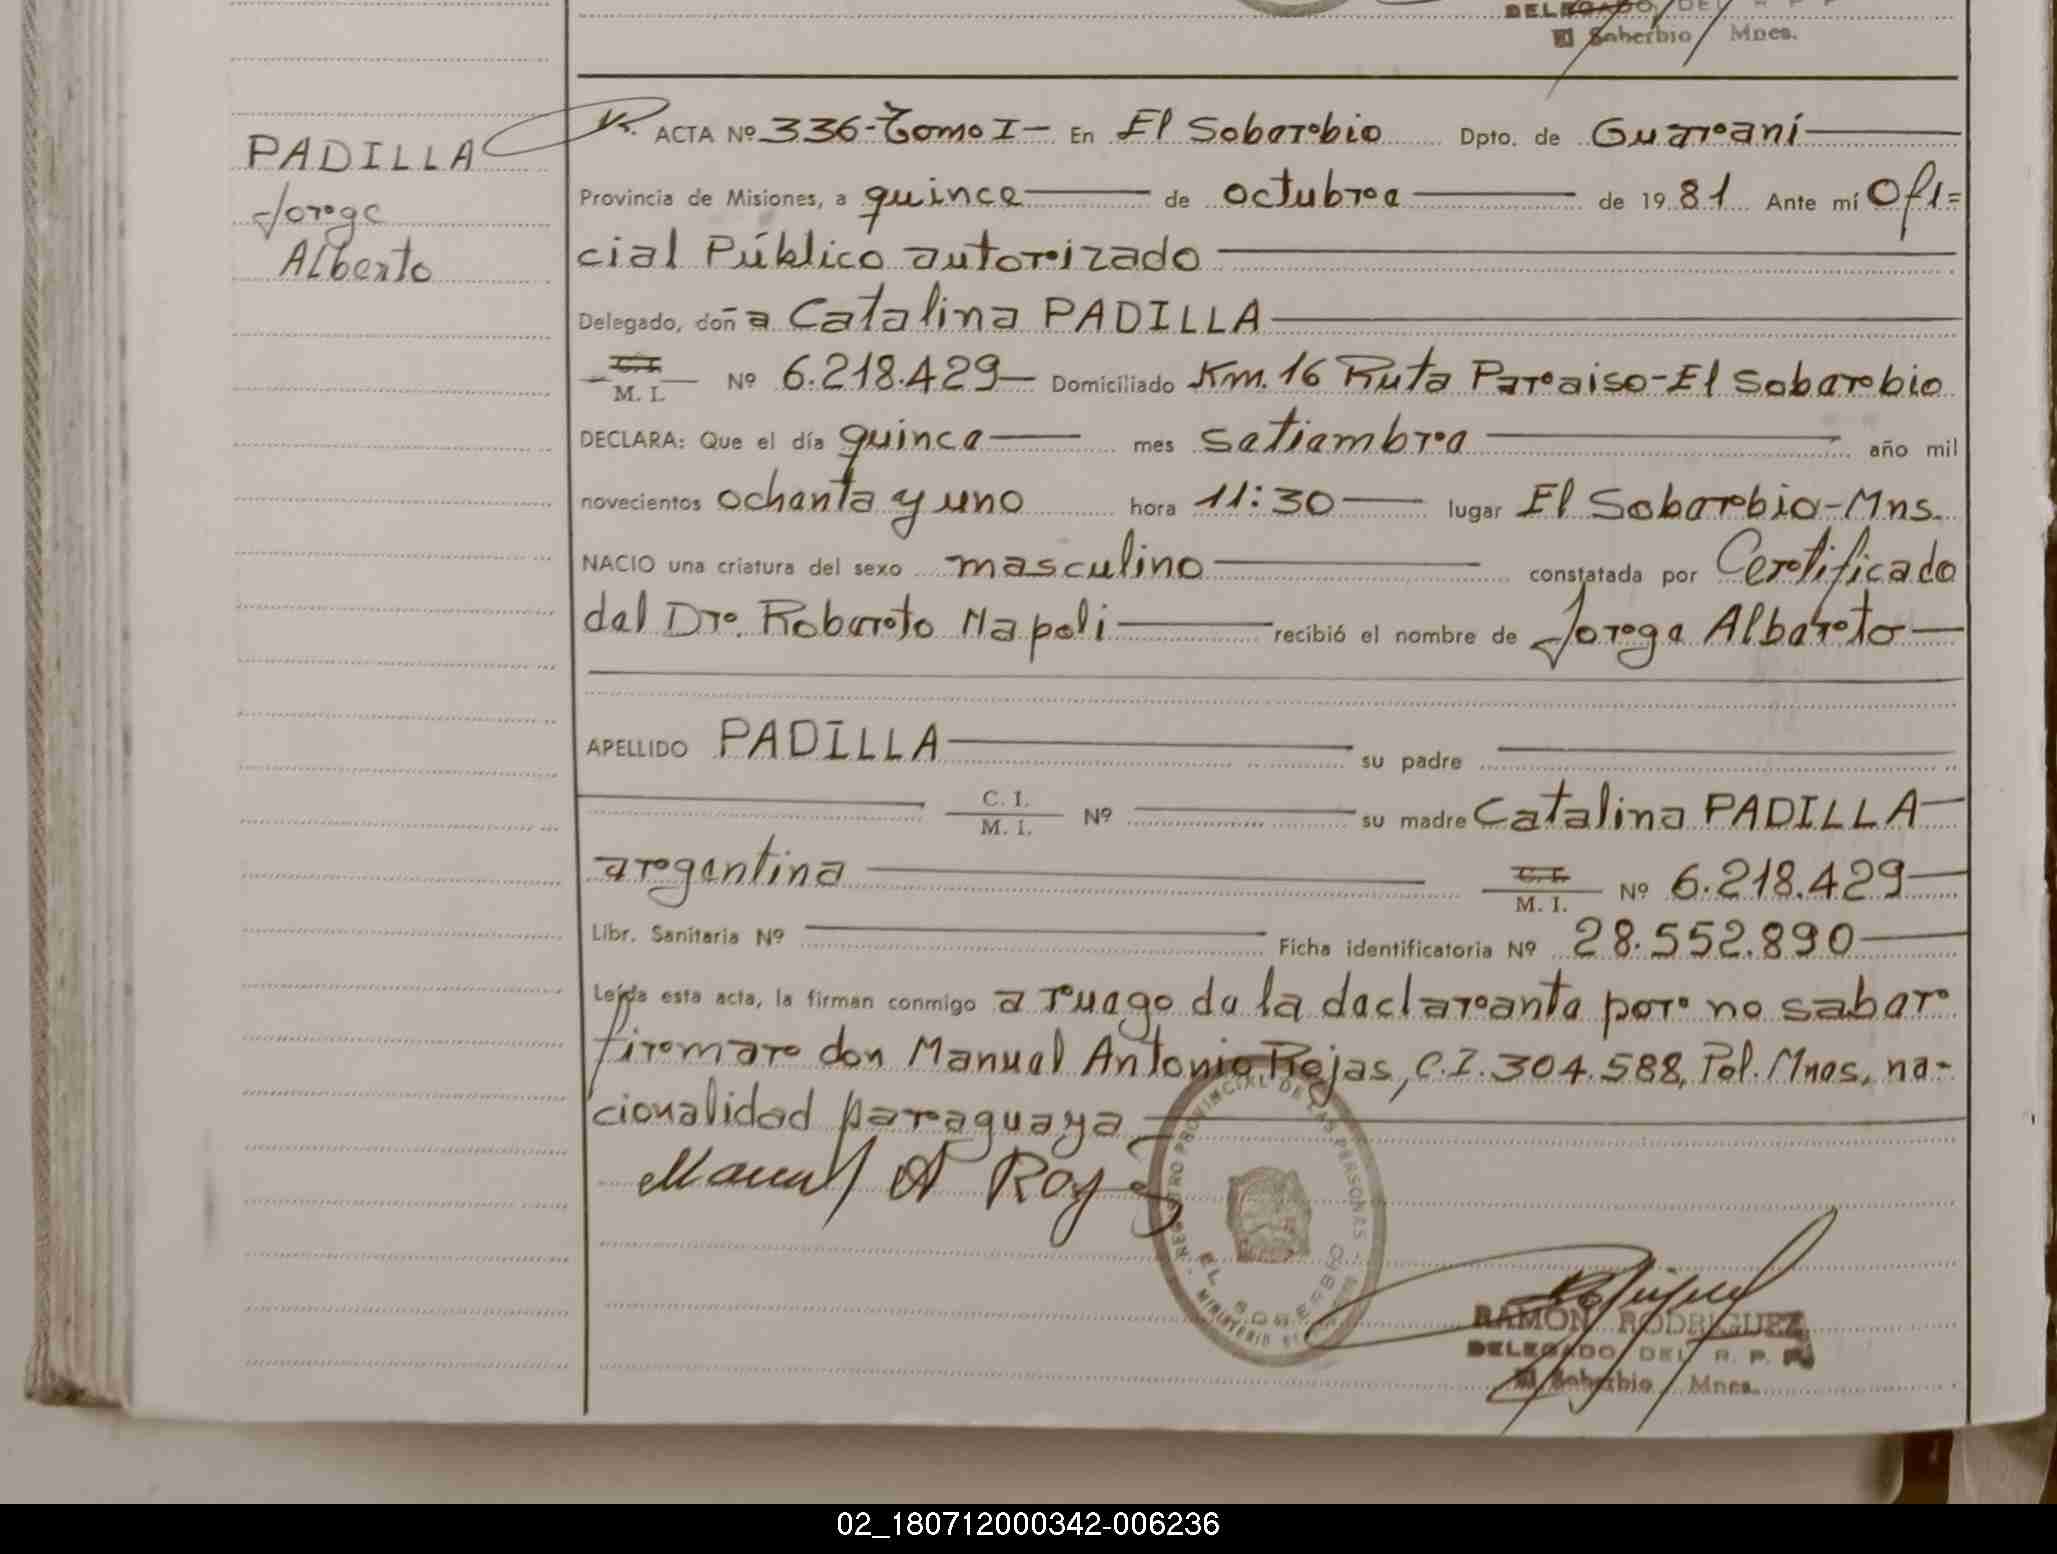 DELEGADO DEL R. P. P.
El Soberbio Mnes.
ACTA Nº 336-Tomo I- En El Soberbio Dpto. de Guaraní
PADILLA
Jorge
Alberto
Provincia de Misiones, a quince de octubre de 1981 Ante mí Ofi=
cial Público autorizado
Delegado, doña Catalina PADILLA
C. I.
M. I. Nº 6.218.429 Domiciliado Km. 16 Ruta Paraiso-El Soberbio
DECLARA: Que el día quince mes setiembre año mil
novecientos ochenta y uno hora 11:30 lugar El Soberbio-Mns.
NACIO una criatura del sexo masculino constatada por Certificado
del Dr. Roberto Napoli recibió el nombre de Jorge Alberto
APELLIDO PADILLA su padre
C. I.
M. I. Nº su madre Catalina PADILLA
argentina C. I.
M. I. Nº 6.218.429
Libr. Sanitaria Nº Ficha identificatoria Nº 28.552.890
Leída esta acta, la firman conmigo a ruego de la declarante por no saber
firmar don Manuel Antonio Rojas, C.I. 304.588, Pol. Mnes, na-
cionalidad paraguaya
Manuel A Rojas
REGISTRO PROVINCIAL DE LAS PERSONAS
EL SOBERBIO
MINISTERIO DE
RAMON RODRIGUEZ
DELEGADO DEL R. P. P.
El Soberbio Mnes.
02_180712000342-006236